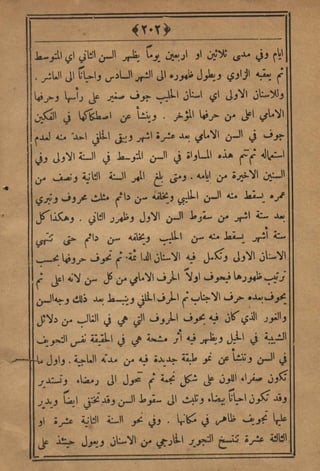 ﴿٢٠٢﴾
ايام وفي مدى ثلاثين او اربعين يوماً يظهر السن الثاني اي المتوسط
ثم يعقبه الزاوي ويطول ظهوره الى الشهر السادس واحياناً الى العاشر .
وللاسنان الاولى اي اسنان الحليب جوف صغير على رأسها وحرفها
الامامي اعلى من حرفها المؤخر . وينشأ عن اصطكاكها في الفكين
جوف في السن الامامي بعد عشرة اشهر ويبقى الخلفي احد منه لعدم
استعماله ثم تتم هذه المساواة في السن المتوسط في السنة الاولى وفي
السنين الاخيرة من ايامه . ومتى بلغ المهر السنة الثانية ونصف من
عمره يسقط منه السن الحليبي ويخلفه سن دائم مثلث محروف ونبري
بعد ستة اشهر من سقوط السن الاول وظهور الثاني . وهكذا كل
ستة أشهر يسقط منه سن الحليب ويخلفه سن دائم حتى تنتهي
الاسنان الاولى وتكمل فيه الاسنان الدائمة ثم تجوف حروفها بحسب
ترتيب ظهورها فيجوف اولاً الحرف الامامي من كل سن لانه اعلى ثم
يجوف بعده حرف الاجناب ثم الحرف الخلفي وينبسط بعد ذلك وجه السن
والغور الذي كان فيه بجوف الحروف التي هي في الغالب من دلائل
الشبيبة في الخيل ويظهر فيه أثر مشحة هي في الحقيقة نفس التجويف
في السن وتنشأ عن نمو طبقة جديدة فيه من مدته العاجية . واول ما
تكون صفراء اللون على شكل نجمة ثم تتحول الى رمضاء وتستدير
وقد تكون احياناً بيضاء وتلبث الى سقوط السن وقد تختفي ايضاً ويدير
عليها تجويف ظاهر في مكانها . وفي نحو السنة الثانية عشرة او
الثالثة عشرة تنسخ التجوير الخارجي من الاسنان ويعول حينئذ على